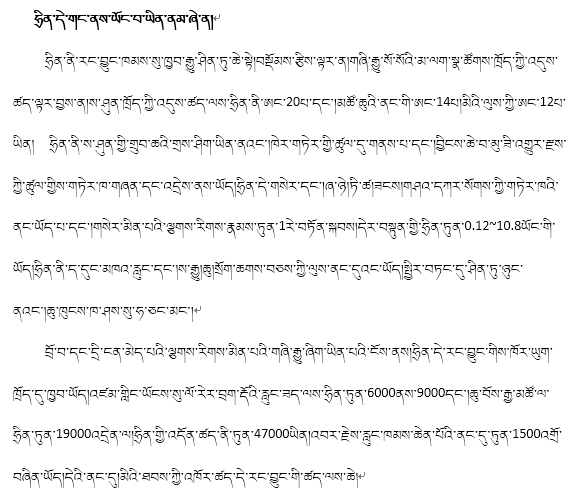 ཧྲིན་དེ་གང་ནས་ཡོང་བ་ཡིན་ནམ་ཞེ་ན།
ཧྲིན་ནི་རང་བྱུང་ཁམས་སུ་ཁྱབ་རྒྱ་ཤིན་ཏུ་ཆེ་སྟེ།བསྡོམས་རྩིས་ལྟར་ན།གཞི་རྒྱུ་སོ་སོའི་མ་ལག་སྣ་ཚོགས་ཁྲོད་ཀྱི་འདུས་
ཚད་ལྟར་བྱས་ན།ས་ཤུན་ཁྲོད་ཀྱི་འདུས་ཚད་ལས་ཧྲིན་ནི་ཨང་20པ་དང་།མཚོ་ཆུའི་ནང་གི་ཨང་14པ།མིའི་ལུས་ཀྱི་ཨང་12པ་
ཡིན། ཧྲིན་ནི་ས་ཤུན་གྱི་གྲུབ་ཆའི་གྲས་ཤིག་ཡིན་ནའང་།ཁེར་གཏེར་གྱི་ཚུལ་དུ་གནས་པ་དང་།བྱིངས་ཆེ་བ་མུ་ཟི་འགྱུར་རྫས་
ཀྱི་ཚུལ་གྱིས་གཏེར་ཁ་གཞན་དང་འདྲེས་ནས་ཡོད།ཧྲིན་དེ་གསེར་དང་།ཞ་ཉེ།ཏི་ཚ།ཟངས།གཤའ་དཀར་སོགས་ཀྱི་གཏེར་ཁའི་
ནང་ཡོད་པ་དང་།གསེར་མིན་པའི་ལྕགས་རིགས་རྣམས་ཏུན་1རེ་བཏོན་སྐབས།དེར་བསྟུན་གྱི་ཧྲིན་ཏུན་0.12~10.8ཡོང་གི་
ཡོད།ཧྲིན་ནི་ད་དུང་མཁའ་རླུང་དང་།ས་རྒྱུ།ཆུ།སྲོག་ཆགས་བཅས་ཀྱི་ལུས་ནང་དུའང་ཡོད།སྤྱིར་བཏང་དུ་ཤིན་ཏུ་ཉུང་
ནའང་།ཆུ་ཁུངས་ཁ་ཤས་སུ་ཧ་ཅང་མང་།
བྲོ་བ་དང་དྲི་ངན་མེད་པའི་ལྕགས་རིགས་མིན་པའི་གཞི་རྒྱུ་ཞིག་ཡིན་པའི་ངོས་ནས།ཧྲིན་དེ་རང་བྱུང་གིས་ཁོར་ཡུག་
ཁྲོད་དུ་ཁྱབ་ཡོད།འཛམ་གླིང་ཡོངས་སུ་ལོ་རེར་བྲག་རྡོའི་རླུང་ཟད་ལས་ཧྲིན་ཏུན་6000ནས་9000དང་།ཆུ་བོས་རྒྱ་མཚོ་ལ་
ཧྲིན་ཏུན་19000འདྲེན་ལ།ཧྲིན་གྱི་འདོན་ཚད་ནི་ཏུན་47000ཡིན།འབར་རྫེས་རླུང་ཁམས་ཆེན་པོའི་ནང་དུ་ཏུན་1500འགྲོ་
བཞིན་ཡོད།དེའི་ནང་དུ།མིའི་ཐབས་ཀྱི་འཁོར་ཚད་དེ་རང་བྱུང་གི་ཚད་ལས་ཆེ།